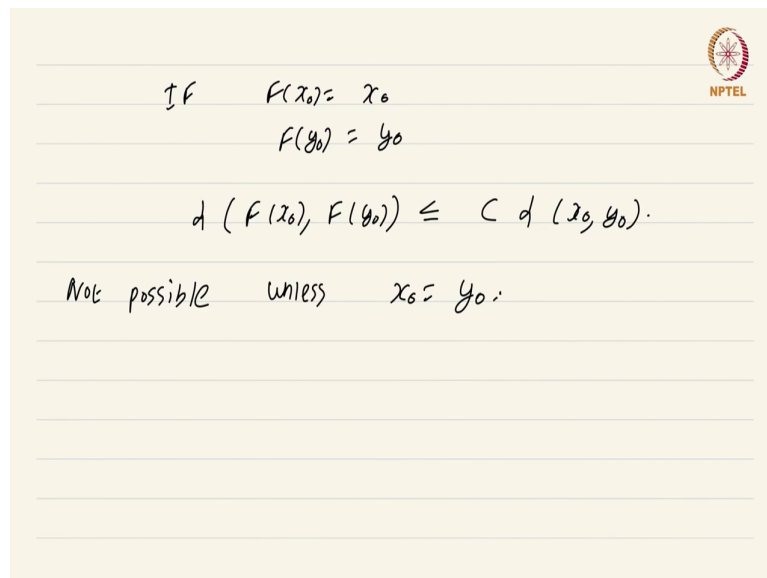 IF F(x₀) = x₀
F(y₀) = y₀
NPTEL
d ( F(x₀), F(y₀)) ≤ C d (x₀, y₀).
Not possible unless x₀ = y₀.